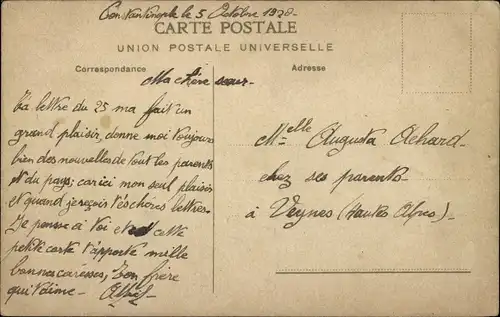 Constantinople le 5 Octobre 1920-
CARTE POSTALE
UNION POSTALE UNIVERSELLE
Correspondance
Adresse
Ma chère soeur-
Ta lettre du 25 ma fait un
grand plaisir, donne moi toujours
bien des nouvelles de tout les parents
et du pays; car ici mon seul plaisir
est quand je reçois tes chères lettres-
Je pense à toi et cette
petite carte t'apporte mille
bonnes caresses, Ton frère
qui t'aime-
Melle Augusta Achard-
chez ses parents-
à Veynes (Hautes Alpes)-